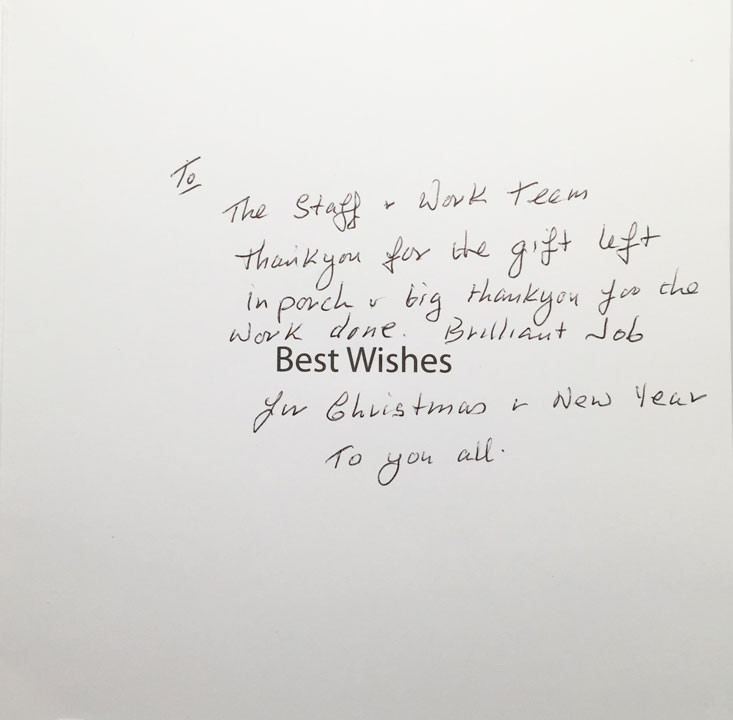 To
The Staff & Work Team
Thankyou for the gift left
in porch & big thankyou for the
work done. Brilliant Job
Best Wishes
for Christmas & New Year
To you all.